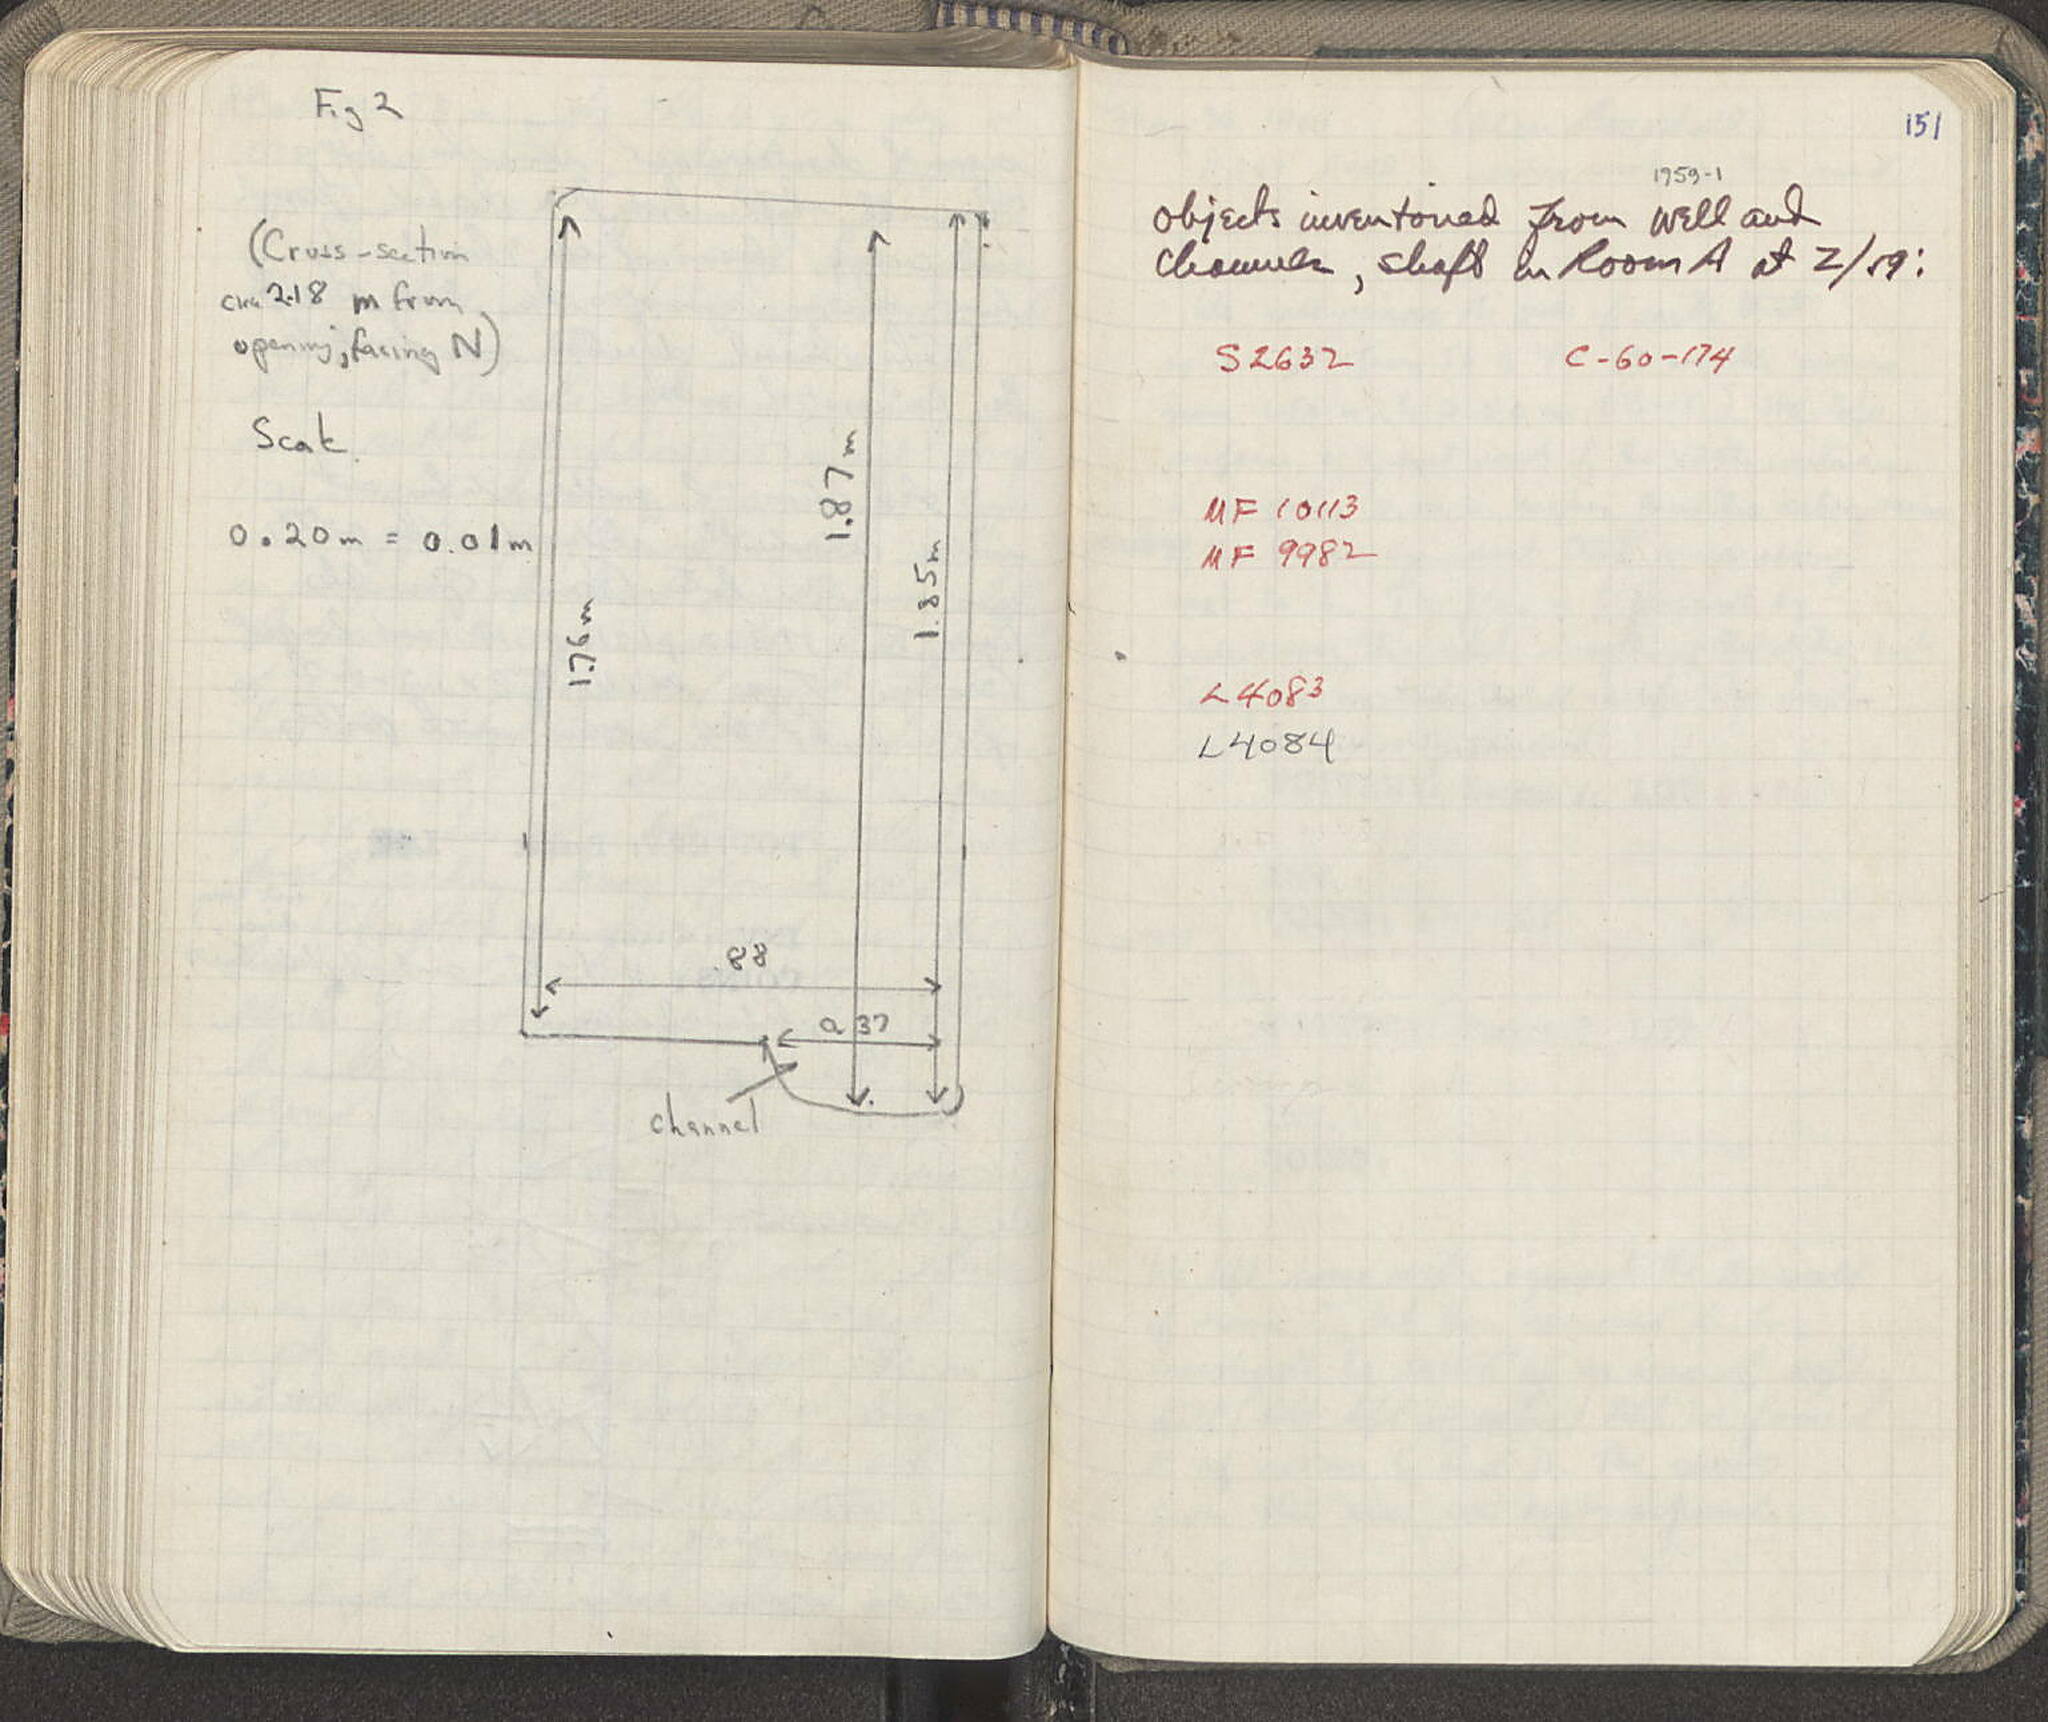 Fig 2
(Cross-section
circa 2.18 m from
opening, facing N)
Scale
0.20m = 0.01m
1.76m
1.87m
1.85m
.88
0.37
channel
151
1959-1
objects inventoried from well and
channel, shaft in Room A at Z/59:
S2632 C-60-174
MF 10113
MF 9982
L4083
L4084